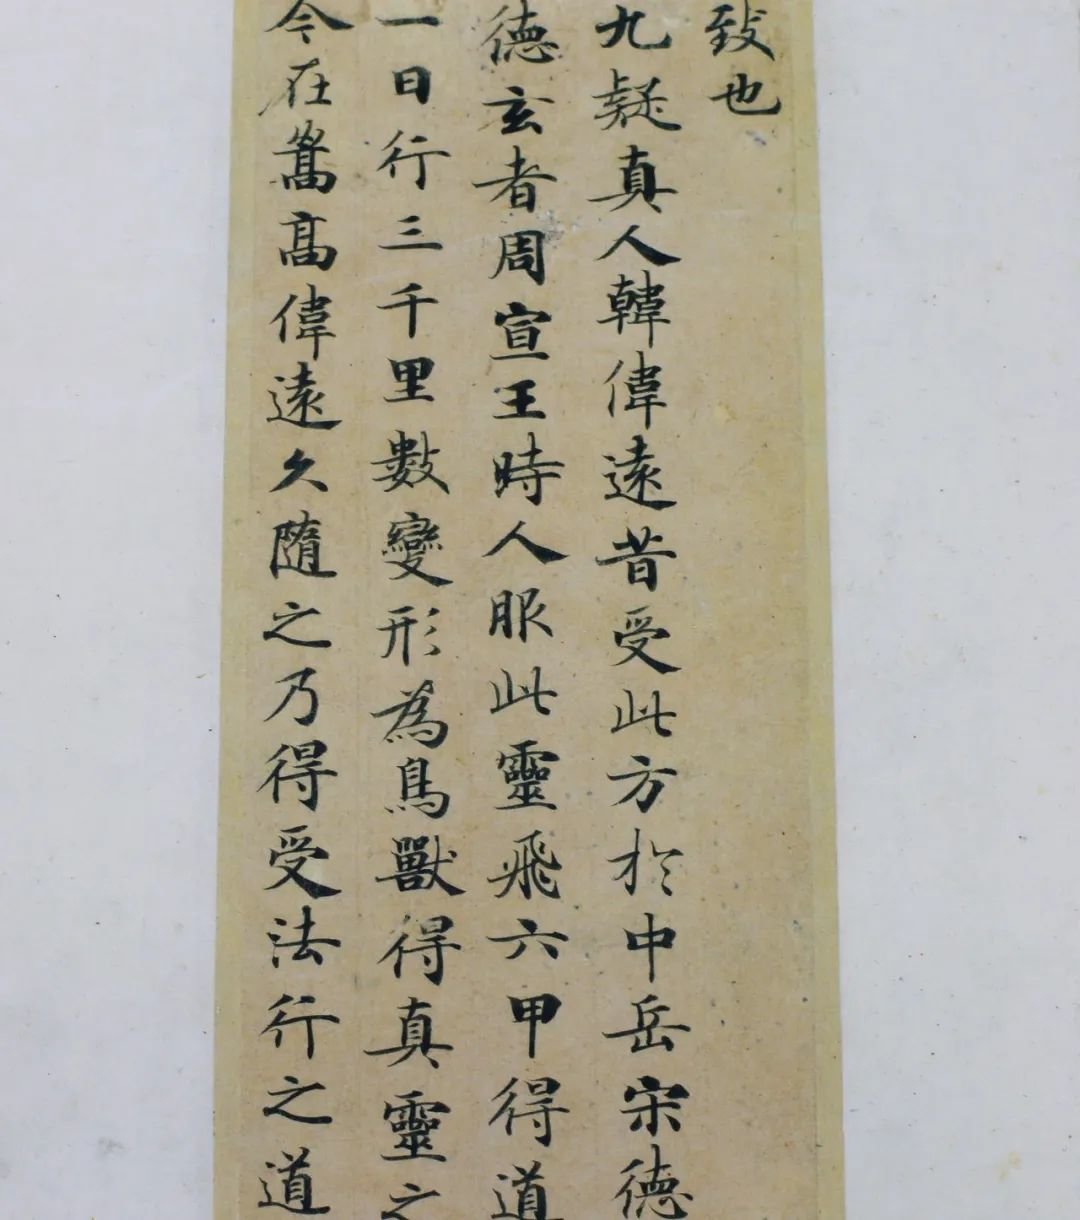 致也
九疑真人韓偉遠昔受此方於中岳宋德
德玄者周宣王時人服此靈飛六甲得道
一日行三千里數變形為鳥獸得真靈之
今在嵩高偉遠久隨之乃得受法行之道